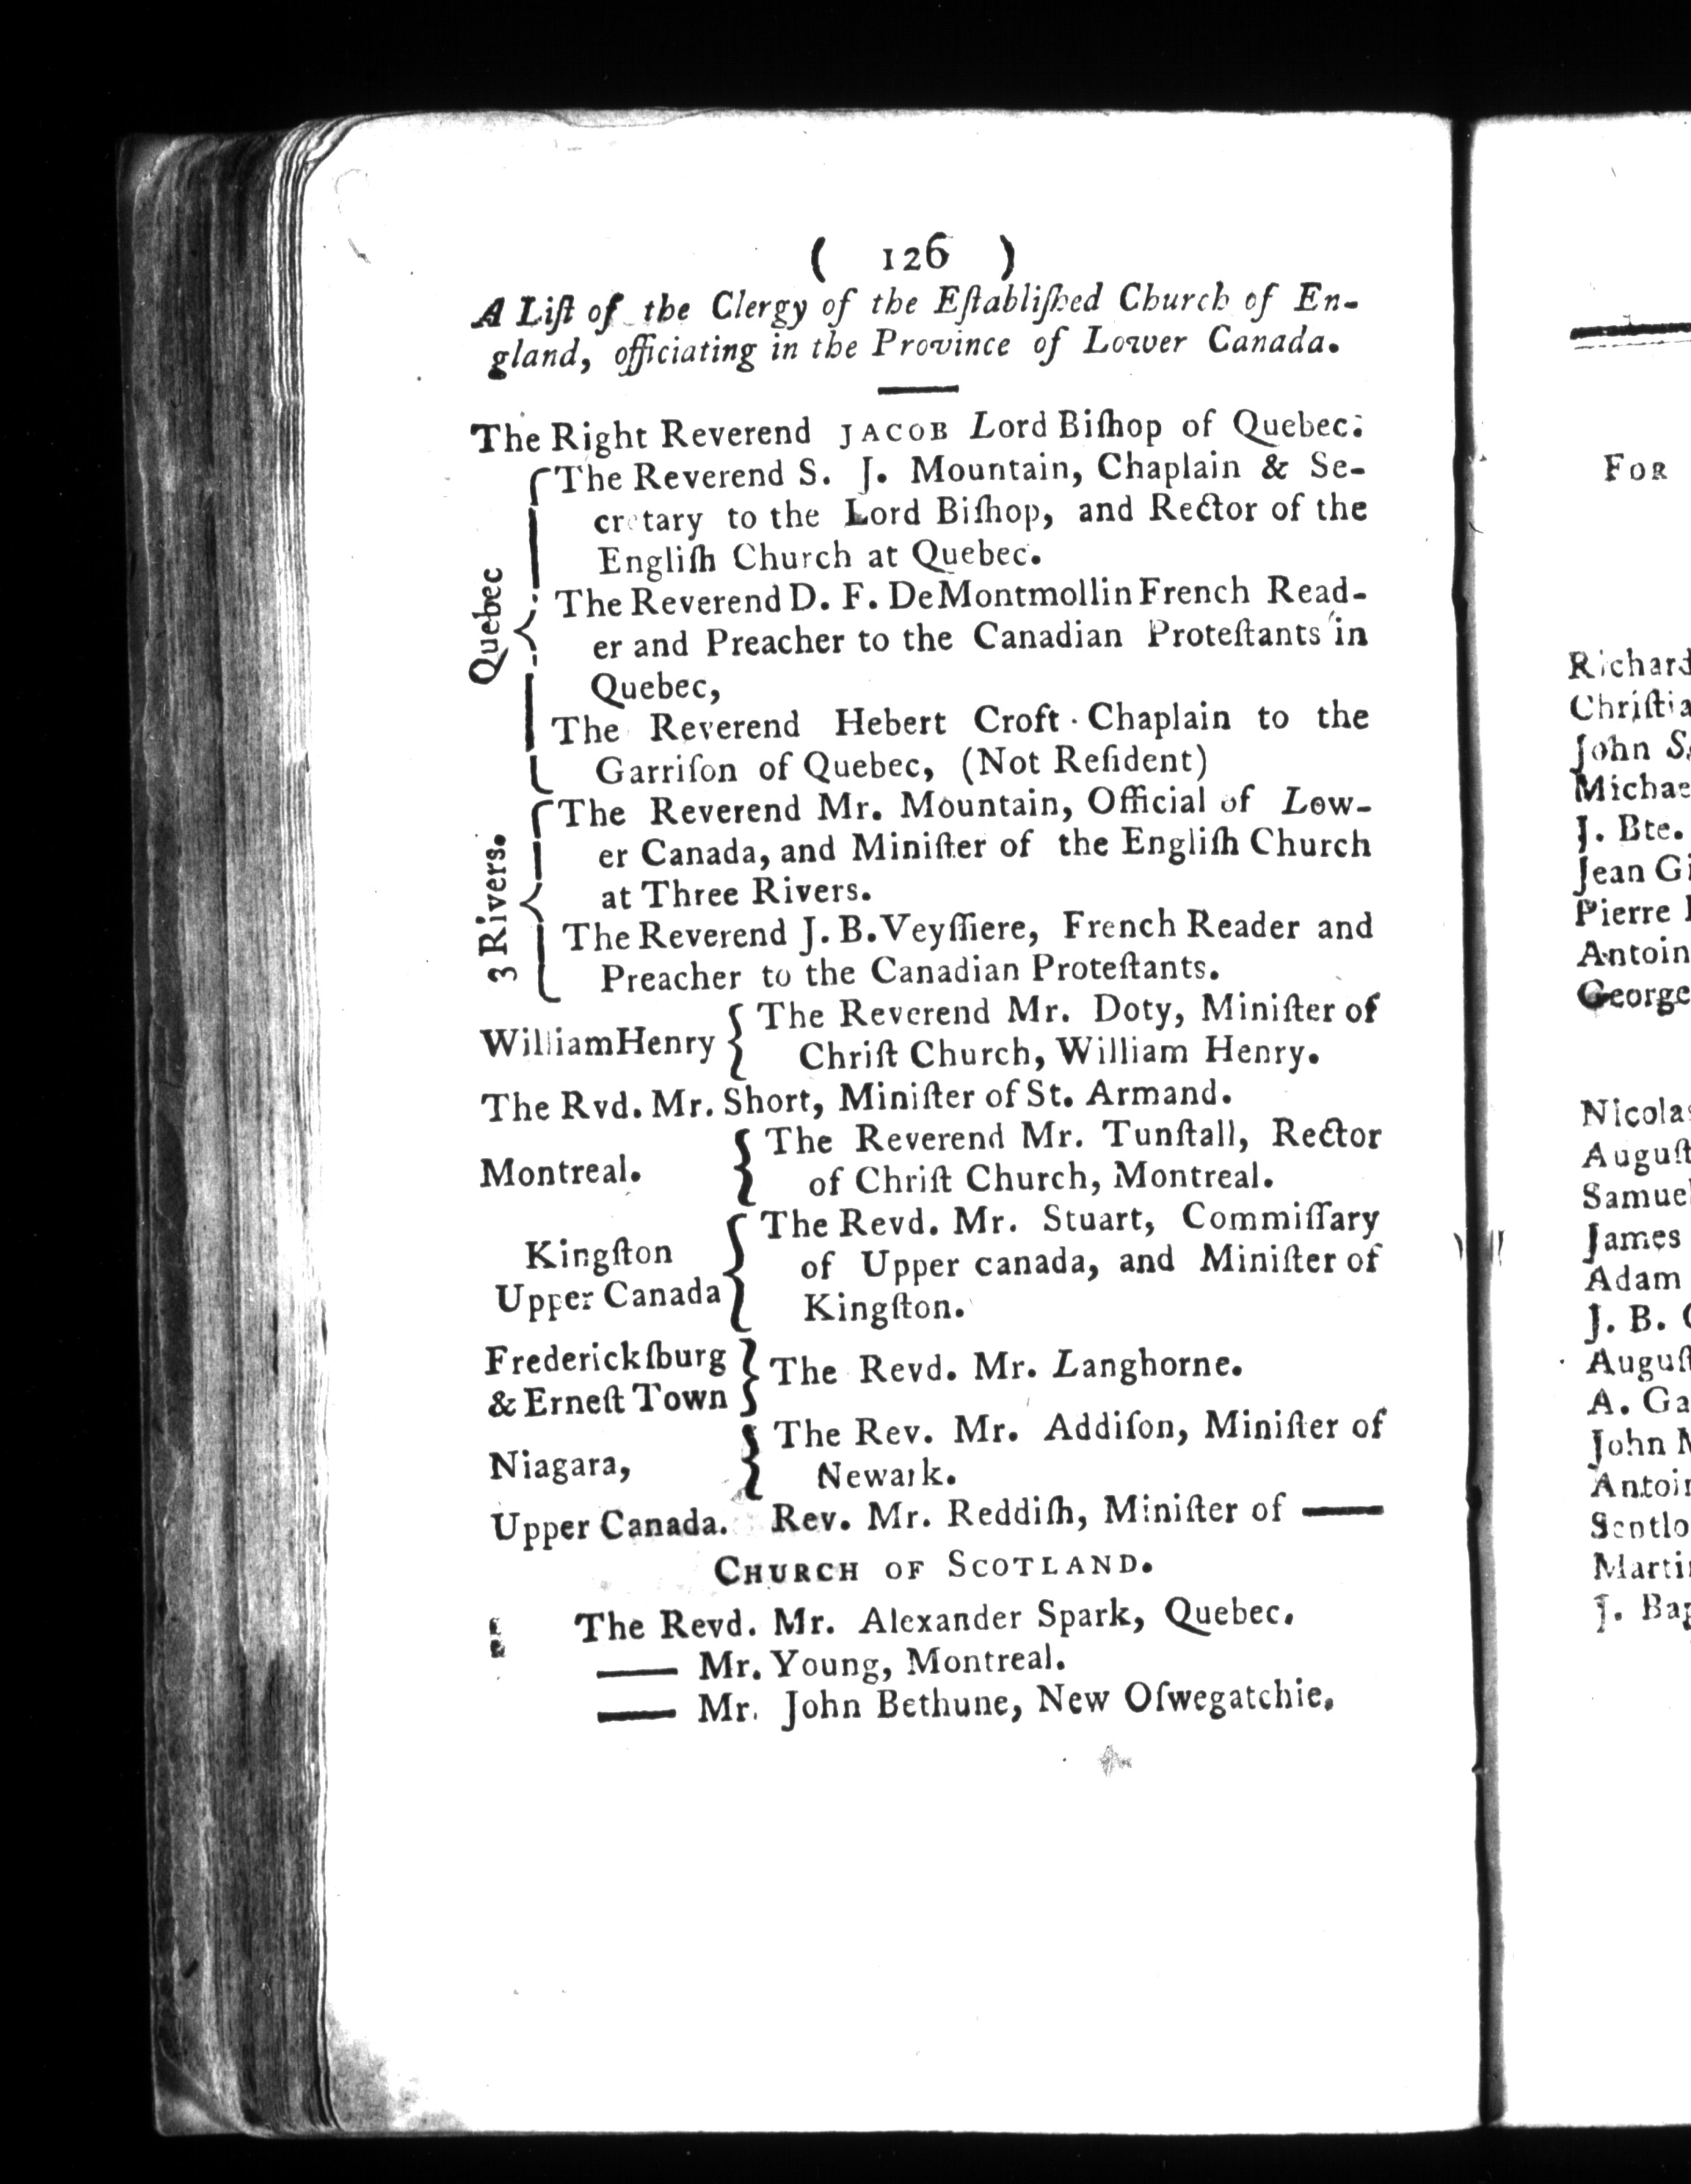 ( 126 )
A Liſt of the Clergy of the Eſtabliſhed Church of En-
gland, officiating in the Province of Lower Canada.
The Right Reverend JACOB Lord Biſhop of Quebec.
Quebec
The Reverend S. J. Mountain, Chaplain & Se-
cretary to the Lord Biſhop, and Rector of the
Engliſh Church at Quebec.
The Reverend D. F. DeMontmollin French Read-
er and Preacher to the Canadian Proteſtants in
Quebec,
The Reverend Hebert Croft Chaplain to the
Garriſon of Quebec, (Not Reſident)
3 Rivers.
The Reverend Mr. Mountain, Official of Low-
er Canada, and Miniſter of the Engliſh Church
at Three Rivers.
The Reverend J. B. Veyſſiere, French Reader and
Preacher to the Canadian Proteſtants.
WilliamHenry { The Reverend Mr. Doty, Miniſter of
Chriſt Church, William Henry.
The Rvd. Mr. Short, Miniſter of St. Armand.
Montreal. } The Reverend Mr. Tunſtall, Rector
of Chriſt Church, Montreal.
Kingſton
Upper Canada
{ The Revd. Mr. Stuart, Commiſſary
of Upper canada, and Miniſter of
Kingſton.
Frederickſburg
& Erneſt Town
} The Revd. Mr. Langhorne.
Niagara, } The Rev. Mr. Addiſon, Miniſter of
Newark.
Upper Canada. Rev. Mr. Reddiſh, Miniſter of ——
CHURCH OF SCOTLAND.
The Revd. Mr. Alexander Spark, Quebec.
—— Mr. Young, Montreal.
—— Mr. John Bethune, New Oſwegatchie.
FOR
Richard
Chriſtia
John
Michae
J. Bte.
Jean Gi
Pierre
Antoin
George
Nicolas
Auguſt
Samuel
James
Adam
J. B.
Auguſt
A. Ga
John
Antoin
Sentlo
Martin
J. Bap